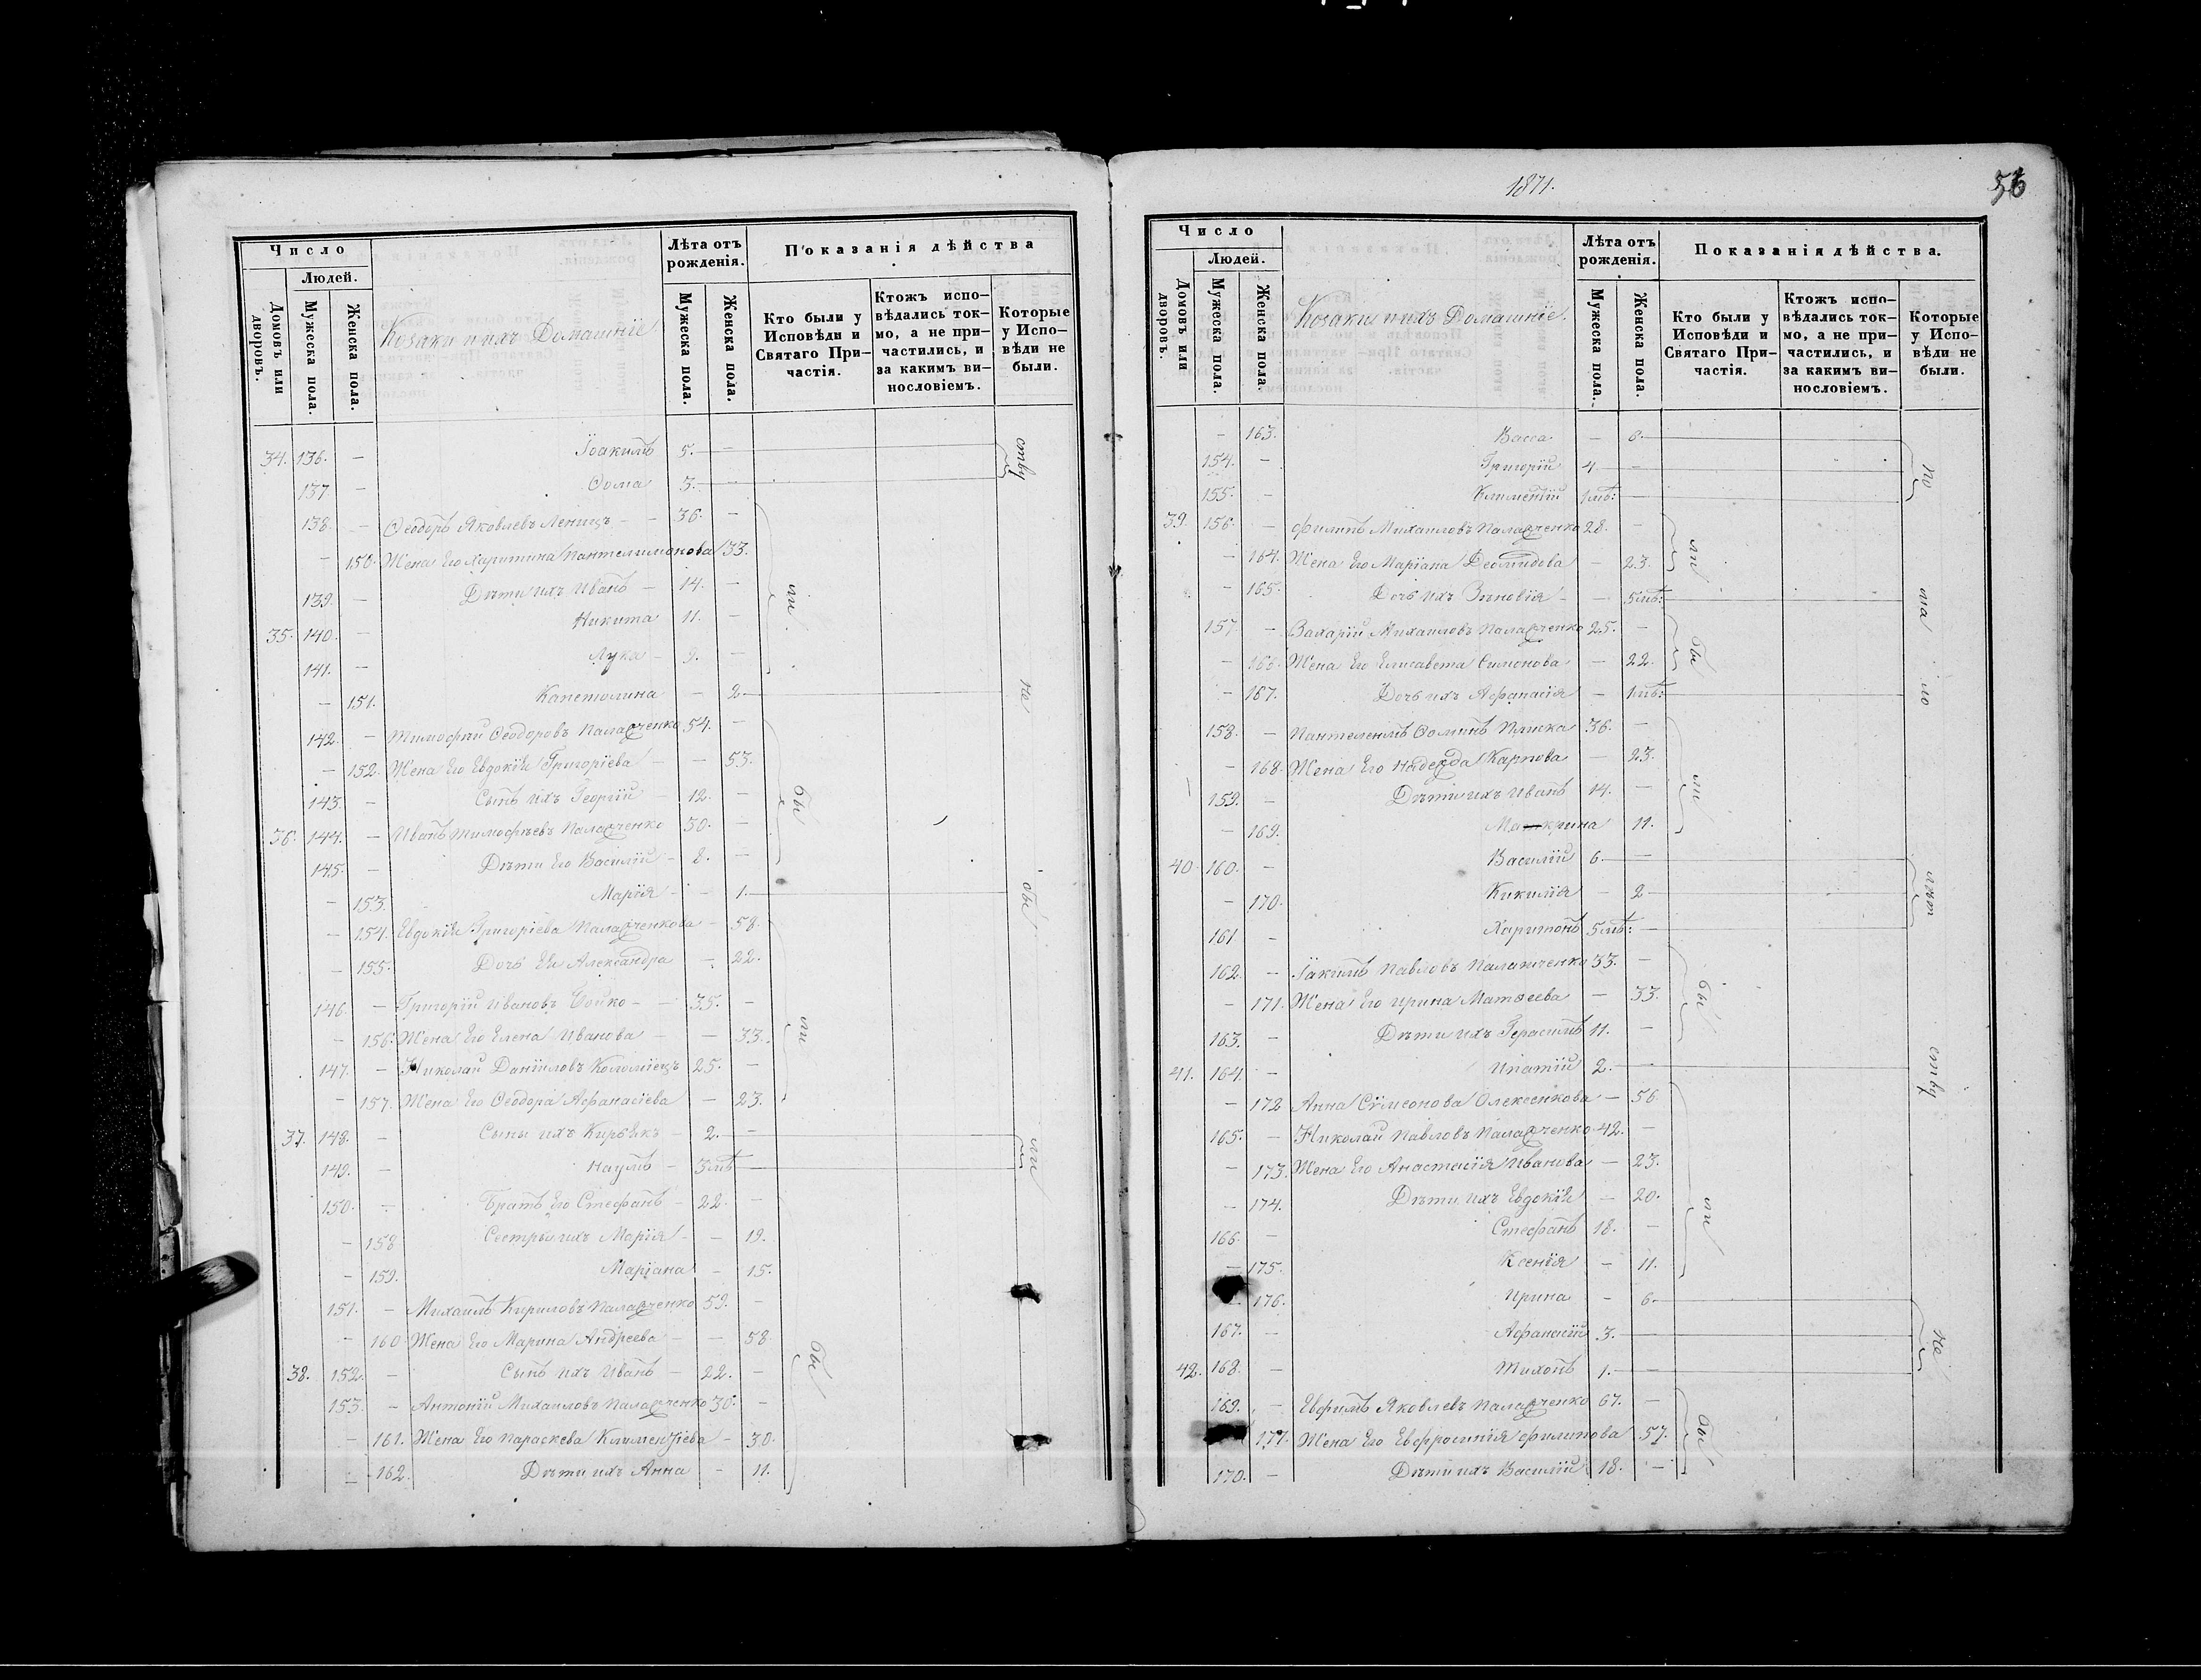 Число
Людей.
Домовъ или дворовъ.
Мужеска пола.
Женска пола.
Козаки и ихъ Домашніе
Лѣта отъ рожденія.
Мужеска пола.
Женска пола.
Показанія дѣйства
Кто были у Исповѣди и Святаго При-частія.
Ктожъ испо-вѣдались ток-мо, а не при-частились, и за какимъ ви-нословіемъ.
Которые у Испо-вѣди не были.
34. 136. – Іоакимъ 5. –
137. – Ѳома 3. –
138. – Ѳеодоръ Яковлевъ – 36. –
– 150. Жена Его Харитина Пантелимонова 33.
139. – Дѣти ихъ Иванъ – 14. –
35. 140. – Никита 11. –
141. – Лука – 9. –
– 151. Капетолина – 2.
142. – Тимофѣй Ѳеодоровъ Паладченко 54. –
– 152. Жена Его Евдокія Григоріева – 53.
143. – Сынъ ихъ Георгій – 12. –
36. 144. – Иванъ Тимофѣевъ Паладченко 30. –
145. – Дѣти Его Василій – 8. –
– 153. Марія – 1.
– 154. Евдокія Григоріева Паладченкова – 58.
– 155. Дочь Ея Александра – 22.
146. – Григорій Ивановъ – 35. –
– 156. Жена Его Елена Иванова – 33.
147. – Николай Даніиловъ Коломіецъ 25. –
– 157. Жена Его Ѳеодора Аѳанасіева – 23.
37. 148. – Сыны ихъ Кирьякъ – 2. –
149. – Наумъ – 3 мѣ
150. – Братъ Его Стефанъ – 22. –
– 158 Сестры ихъ Марія – 19.
– 159. Маріана – 15.
151. – Михаилъ Кириловъ Паладченко 59. –
– 160 Жена Его Марина Андреева – 58
38. 152. – Сынъ ихъ Иванъ – 22. –
153. – Антоній Михаиловъ Паладченко 30. –
– 161. Жена Его Параскева Климентіева – 30.
– 162. Дѣти ихъ Анна – 11.
бы
ли
не
бы
ли
1871.
56
Число
Людей.
Домовъ или дворовъ.
Мужеска пола.
Женска пола.
Козаки и ихъ Домашніе.
Лѣта отъ рожденія.
Мужеска пола.
Женска пола.
Показанія дѣйства.
Кто были у Исповѣди и Святаго При-частія.
Ктожъ испо-вѣдались ток-мо, а не при-частились, и за какимъ ви-нословіемъ.
Которые у Испо-вѣди не были.
– 163. Васса – 8.
154. – Григорій 4. –
155. – Климентій 1 мѣ: –
39. 156. – Филипъ Михаиловъ Паладченко 28. –
– 164. Жена Его Маріана Деомидова – 23.
– 165. Дочь ихъ Зѣновія – 5 мѣ:
157. – Захарій Михаиловъ Паладченко 25. –
– 166. Жена Его Елисавета Симонова – 22.
– 167. Дочь ихъ Аѳанасія – 1 мѣ:
158. – Пантелеимъ Ѳоминъ 36. –
– 168. Жена Его Надежда Карпова – 23.
159. – Дѣти ихъ Иванъ 14. –
– 169. Макрина 11.
40. 160. – Василій 6. –
– 170. Кикилія – 2
161 – Харитонъ 5 мѣ: –
162. – Іакимъ Павловъ 33. –
– 171. Жена Его Ирина Матѳеева – 33.
163. – Дѣти ихъ Герасимъ 11. –
41. 164. – Ипатій 2. –
– 172 Анна Сѵмеонова Олексенкова – 56.
165. – Николай Павловъ Паладченко 42. –
– 173. Жена Его Анастасія Иванова – 23.
– 174. Дѣти ихъ Евдокія – 20.
166. – Стефанъ 18. –
– 175. Ксенія – 11.
176. Ирина – 6.
167. – Аѳанасій 3. –
42. 168. – Тихонъ 1. –
169. – Евфимъ Яковлевъ Паладченко 67. –
177. Жена Его Евфросинія Филипова 57.
170. – Дѣти ихъ Василій 18. –
ли
бы
ли
бы
ли
бы
по
ма
ло
лѣт
ству
не